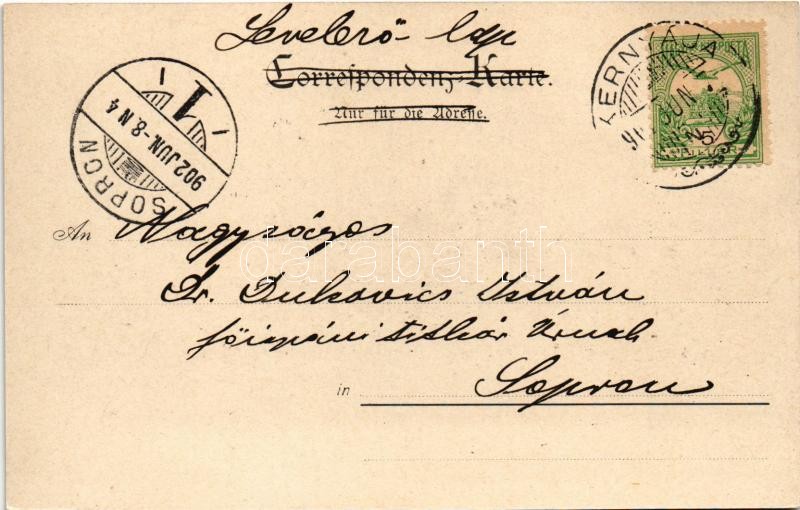 Levelező-lap
Correspondenz-Karte.
Nur für die Adresse.
KERNYAJA
5
SOPRON
902 JUN.-8.N 4
1
An Nagyságos
Dr. Dukovics István
főispáni titkár Úrnak
in Sopron
darabanth